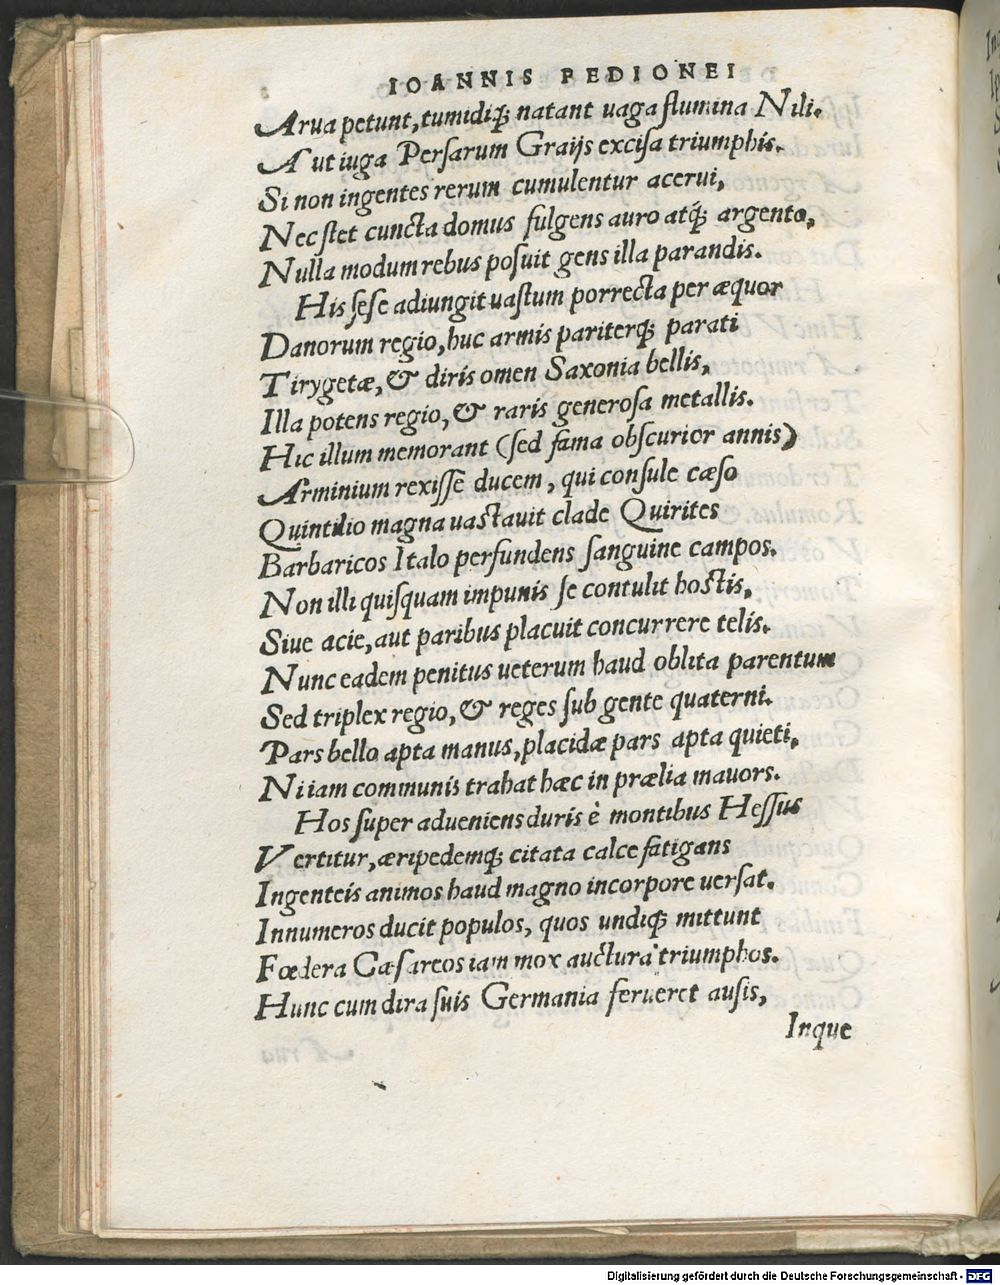 IOANNIS PEDIONEI
Arua petunt, tumidiq; natant uaga flumina Nili.
Aut iuga Persarum Graijs excisa triumphis.
Si non ingentes rerum cumulentur acerui,
Nec stet cuncta domus fulgens auro atq; argento,
Nulla modum rebus posuit gens illa parandis.
His sese adiungit uastum porrecta per æquor
Danorum regio, huc armis pariterq; parati
Tirygetæ, & diris omen Saxonia bellis,
Illa potens regio, & raris generosa metallis.
Hic illum memorant (sed fama obscurior annis)
Arminium rexisse ducem, qui consule cæso
Quintilio magna uastauit clade Quirites
Barbaricos Italo perfundens sanguine campos.
Non illi quisquam impunis se contulit hostis,
Siue acie, aut paribus placuit concurrere telis.
Nunc eadem penitus ueterum haud oblita parentum
Sed triplex regio, & reges sub gente quaterni.
Pars bello apta manus, placidæ pars apta quieti,
Ni iam communis trahat hæc in prælia mauors.
Hos super adueniens duris è montibus Hessus
Vertitur, æripedemq; citata calce fatigans
Ingenteis animos haud magno in corpore uersat.
Innumeros ducit populos, quos undiq; mittunt
Fœdera Cæsareos iam mox auctura triumphos.
Hunc cum dira suis Germania ferueret ausis,
Inque
Digitalisierung gefördert durch die Deutsche Forschungsgemeinschaft - DFG